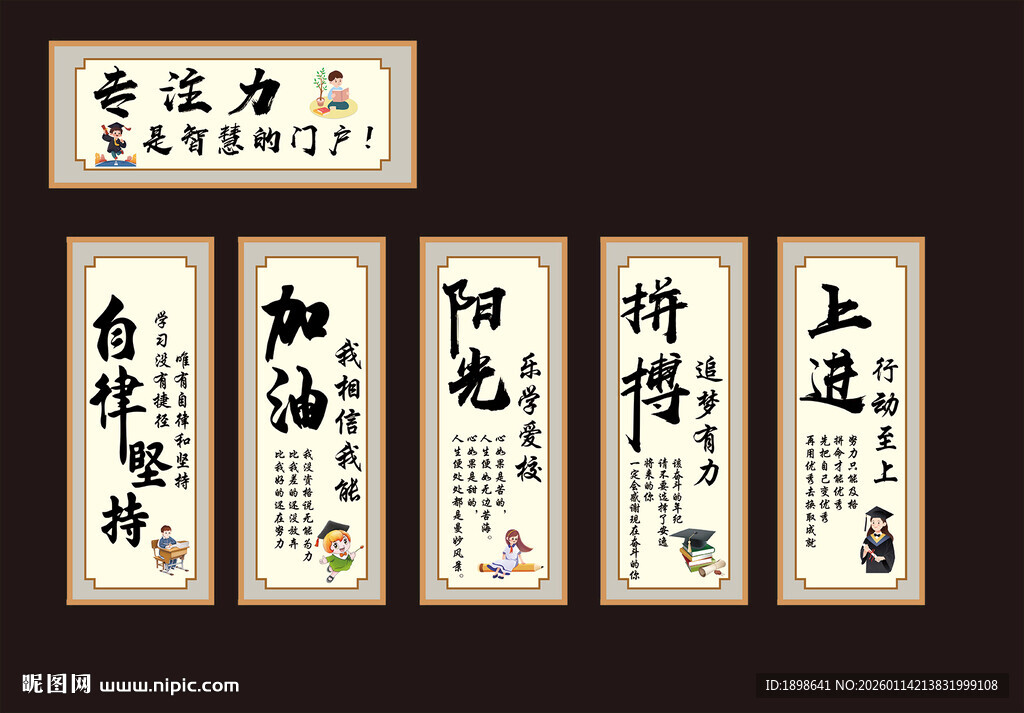 专注力
是智慧的门户！
自律
坚持
学习没有捷径
唯有自律和坚持
加油
我相信我能
我没资格说无能为力
比我差的还没放弃
比我好的还在努力
阳光
乐学爱校
心如果是苦的，
人生便如无边苦海。
心如果是甜的，
人生便处处都是曼妙风景。
拼搏
追梦有力
该奋斗的年纪
请不要选择了安逸
将来的你
一定会感谢现在奋斗的你
上进
行动至上
努力只能及格
拼命才能优秀
先把自己变优秀
再用优秀去换取成就
昵图网 www.nipic.com
ID:1898641 NO:20260114213831999108